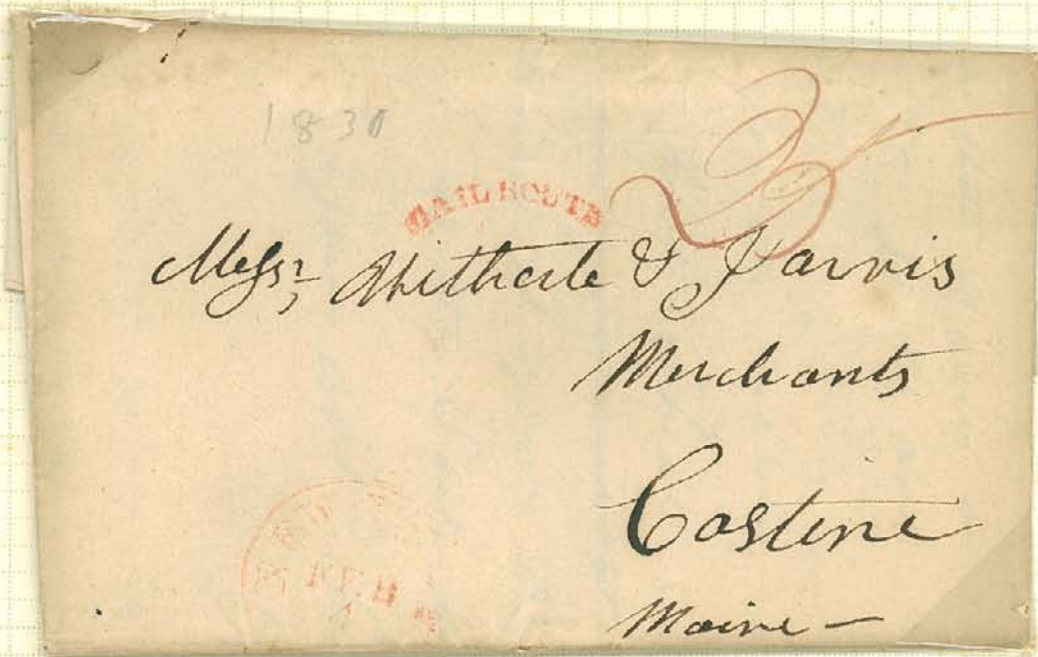 1830
25
MAIL ROUTE
Messrs Witherle & Jarvis
Merchants
Castine
Maine —
FEB